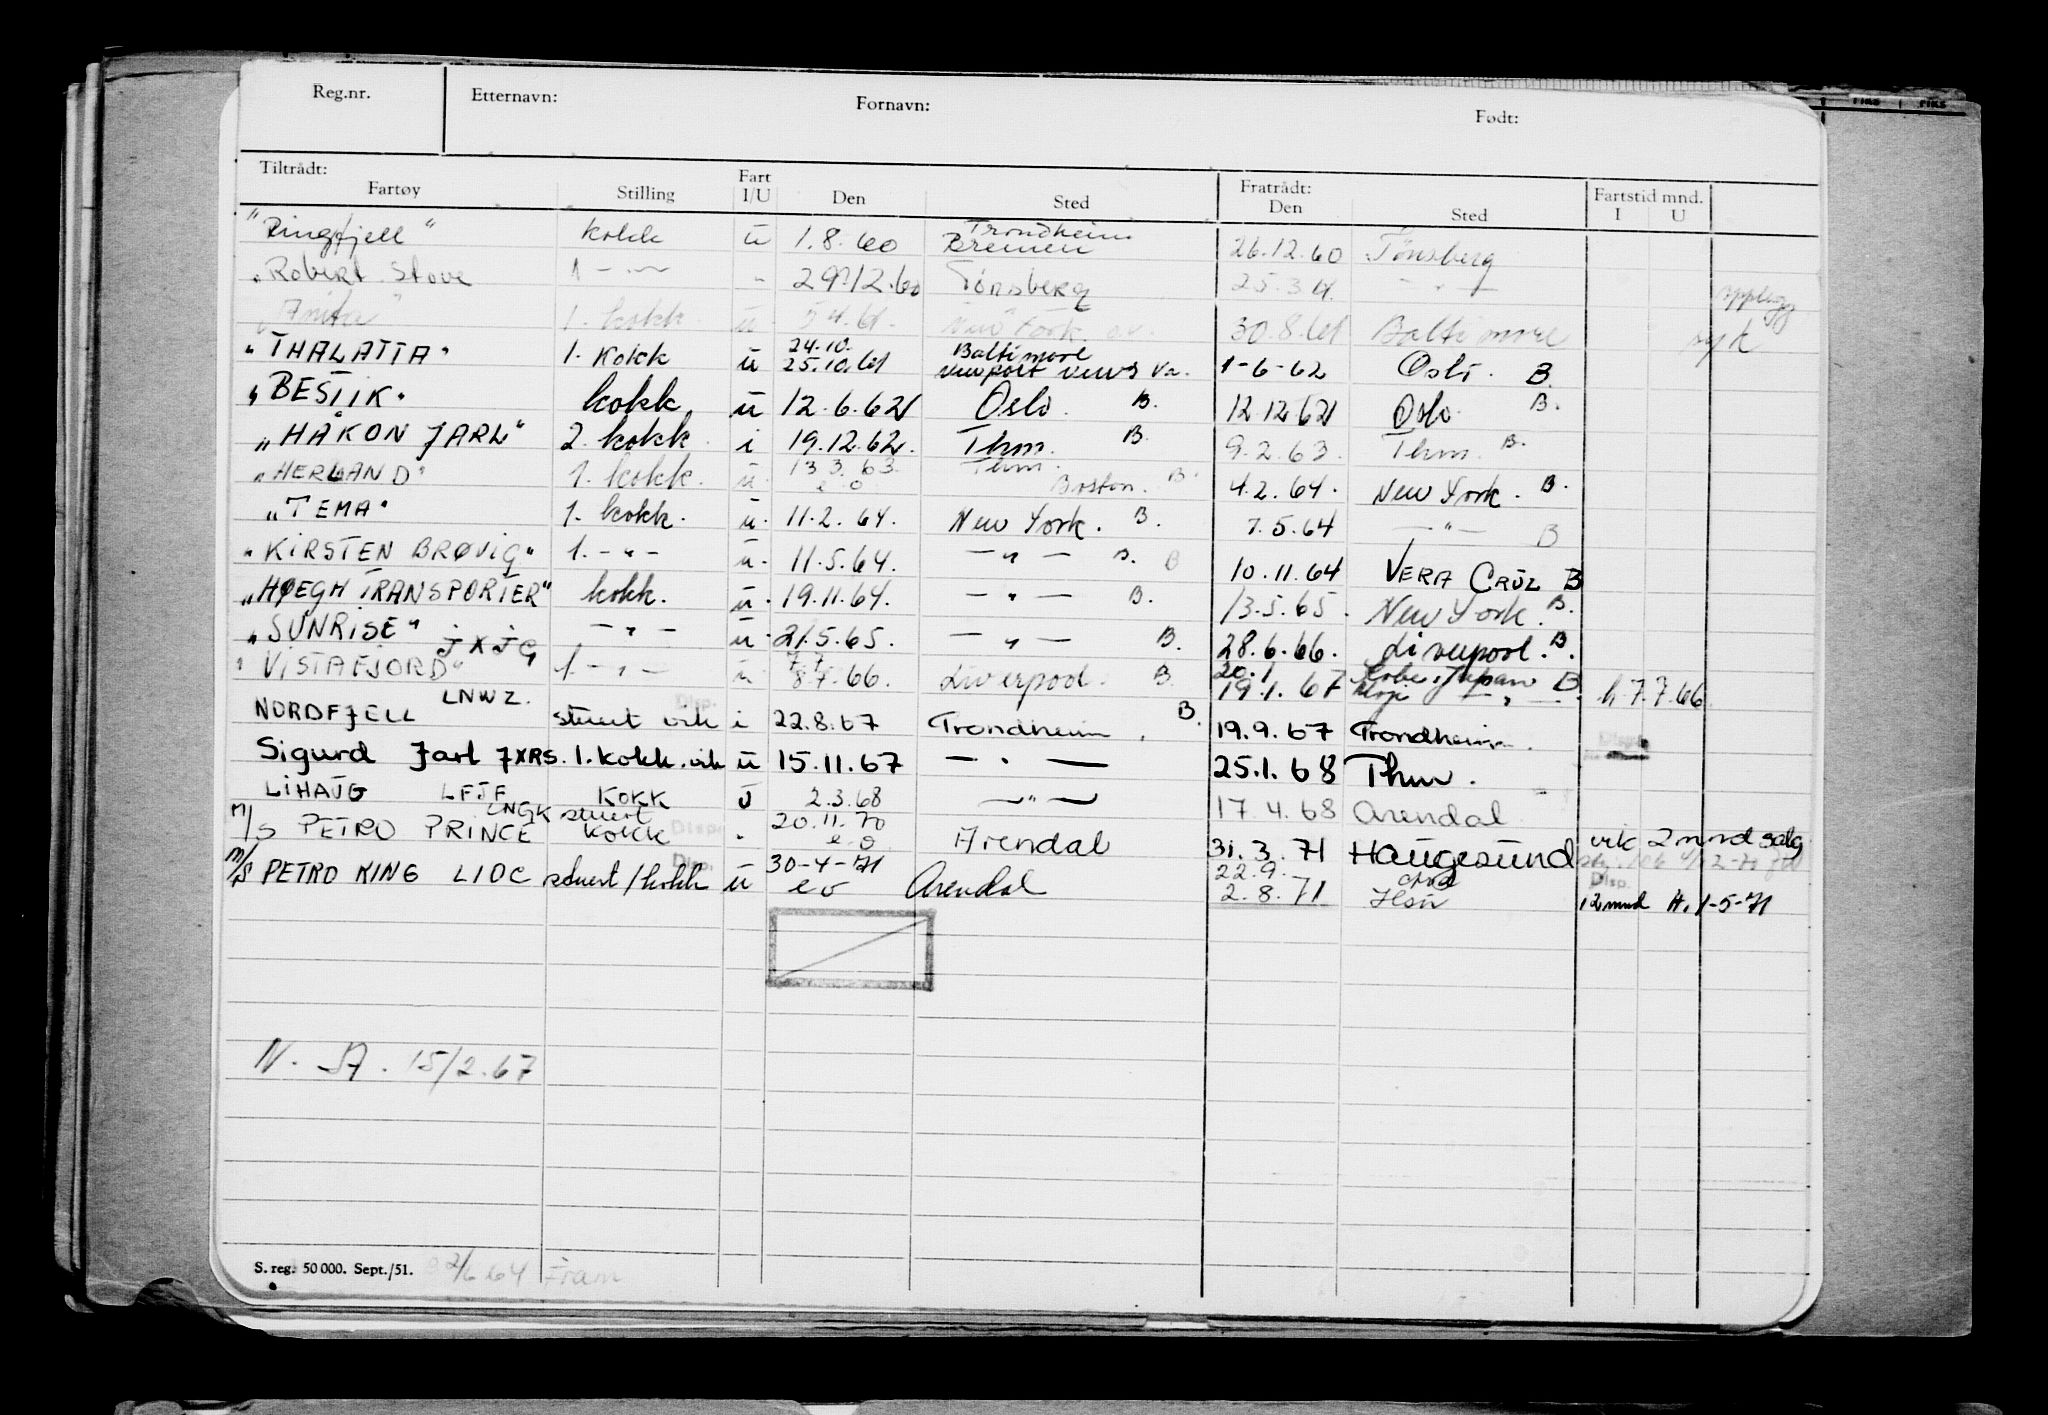 Reg.nr. Etternavn: Fornavn: Født:
Tiltrådt: Fratrådt:
Fartøy Stilling Fart I/U Den Sted Den Sted Fartstid mnd. I U
"Ringfjell" kokk u 1.8.60 Trondheim Bremen 26.12.60 Tønsberg
"Robert Stove 1 - " - 29.12.60 Tønsberg 25.3.61 - " - opplegg
"Anita" 1. kokk u 5.4.61. New York 30.8.61 Baltimore syk
"THALATTA" 1. kokk u 24.10. 25.10.61 Baltimore Newport News Va. 1-6-62 Oslo. B
"BESTIK" kokk u 12.6.62 Oslo. B. 12.12.62 Oslo. B.
"HÅKON JARL" 2. kokk i 19.12.62. Thm. B. 9.2.63. Thm. B.
"HERLAND" 1. kokk. u. 13.3.63. e o Thm. Boston. B. 4.2.64. New York. B.
"TEMA" 1. kokk. u. 11.2.64. New York. B. 7.5.64 - " - B
"KIRSTEN BRØVIG" 1. - " - u. 11.5.64. - " - B. B 10.11.64 VERA CRUZ B
"HØEGH TRANSPORTER" kokk. u. 19.11.64. - " - B. 13.5.65. New York. B.
"SUNRISE" - " - u. 21.5.65. - " - B. 28.6.66. Liverpool. B.
"VISTAFJORD" JXJG 1. - " - u 7.7 8.7.66. Liverpool. B. 20.1 19.1.67 Kobe, Japan B Moji - " - h. 7.7.66
NORDFJELL LNWZ. stuert vik i 22.8.67 Trondheim. B. 19.9.67 Trondheim.
Disp.
Sigurd Jarl JXRS. 1. kokk. vik u 15.11.67 - " - 25.1.68 Thm.
LIHAUG LFJF KOKK U 2.3.68 - " - 17.4.68 Arendal
M/S PETRO PRINCE LNGK stuert kokk " 20.11.70 e o Arendal 31.3.71 Haugesund vik 2 mnd salg
Disp.
M/S PETRO KING LIOC stuert/kokk u 30-4-71 e o Arendal 22.9. 2.8.71 12 mnd H. 1-5-71
Disp.
N. SA. 15/2.67
S. reg. 50 000. Sept./51. 2/6 64 Fram